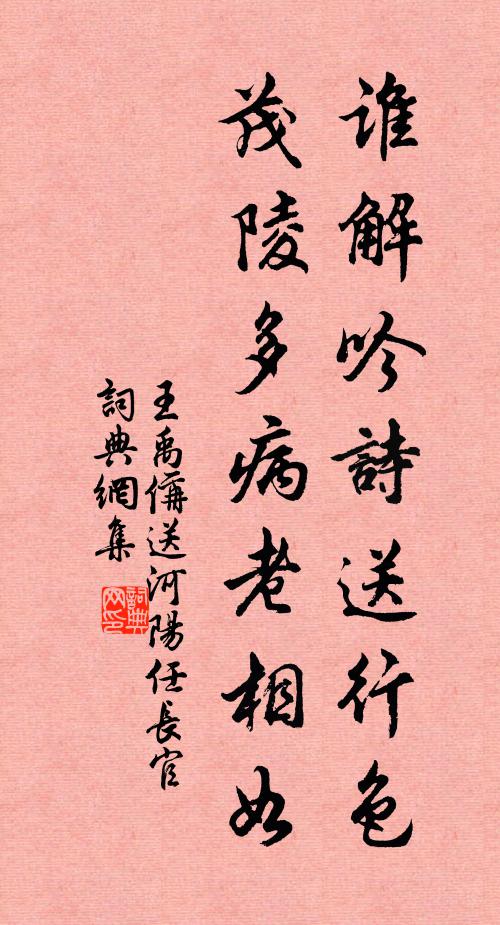 誰解吟詩送行色
茂陵多病老相如
王禹偁送河陽任長官
詞典網集
詞典
网印